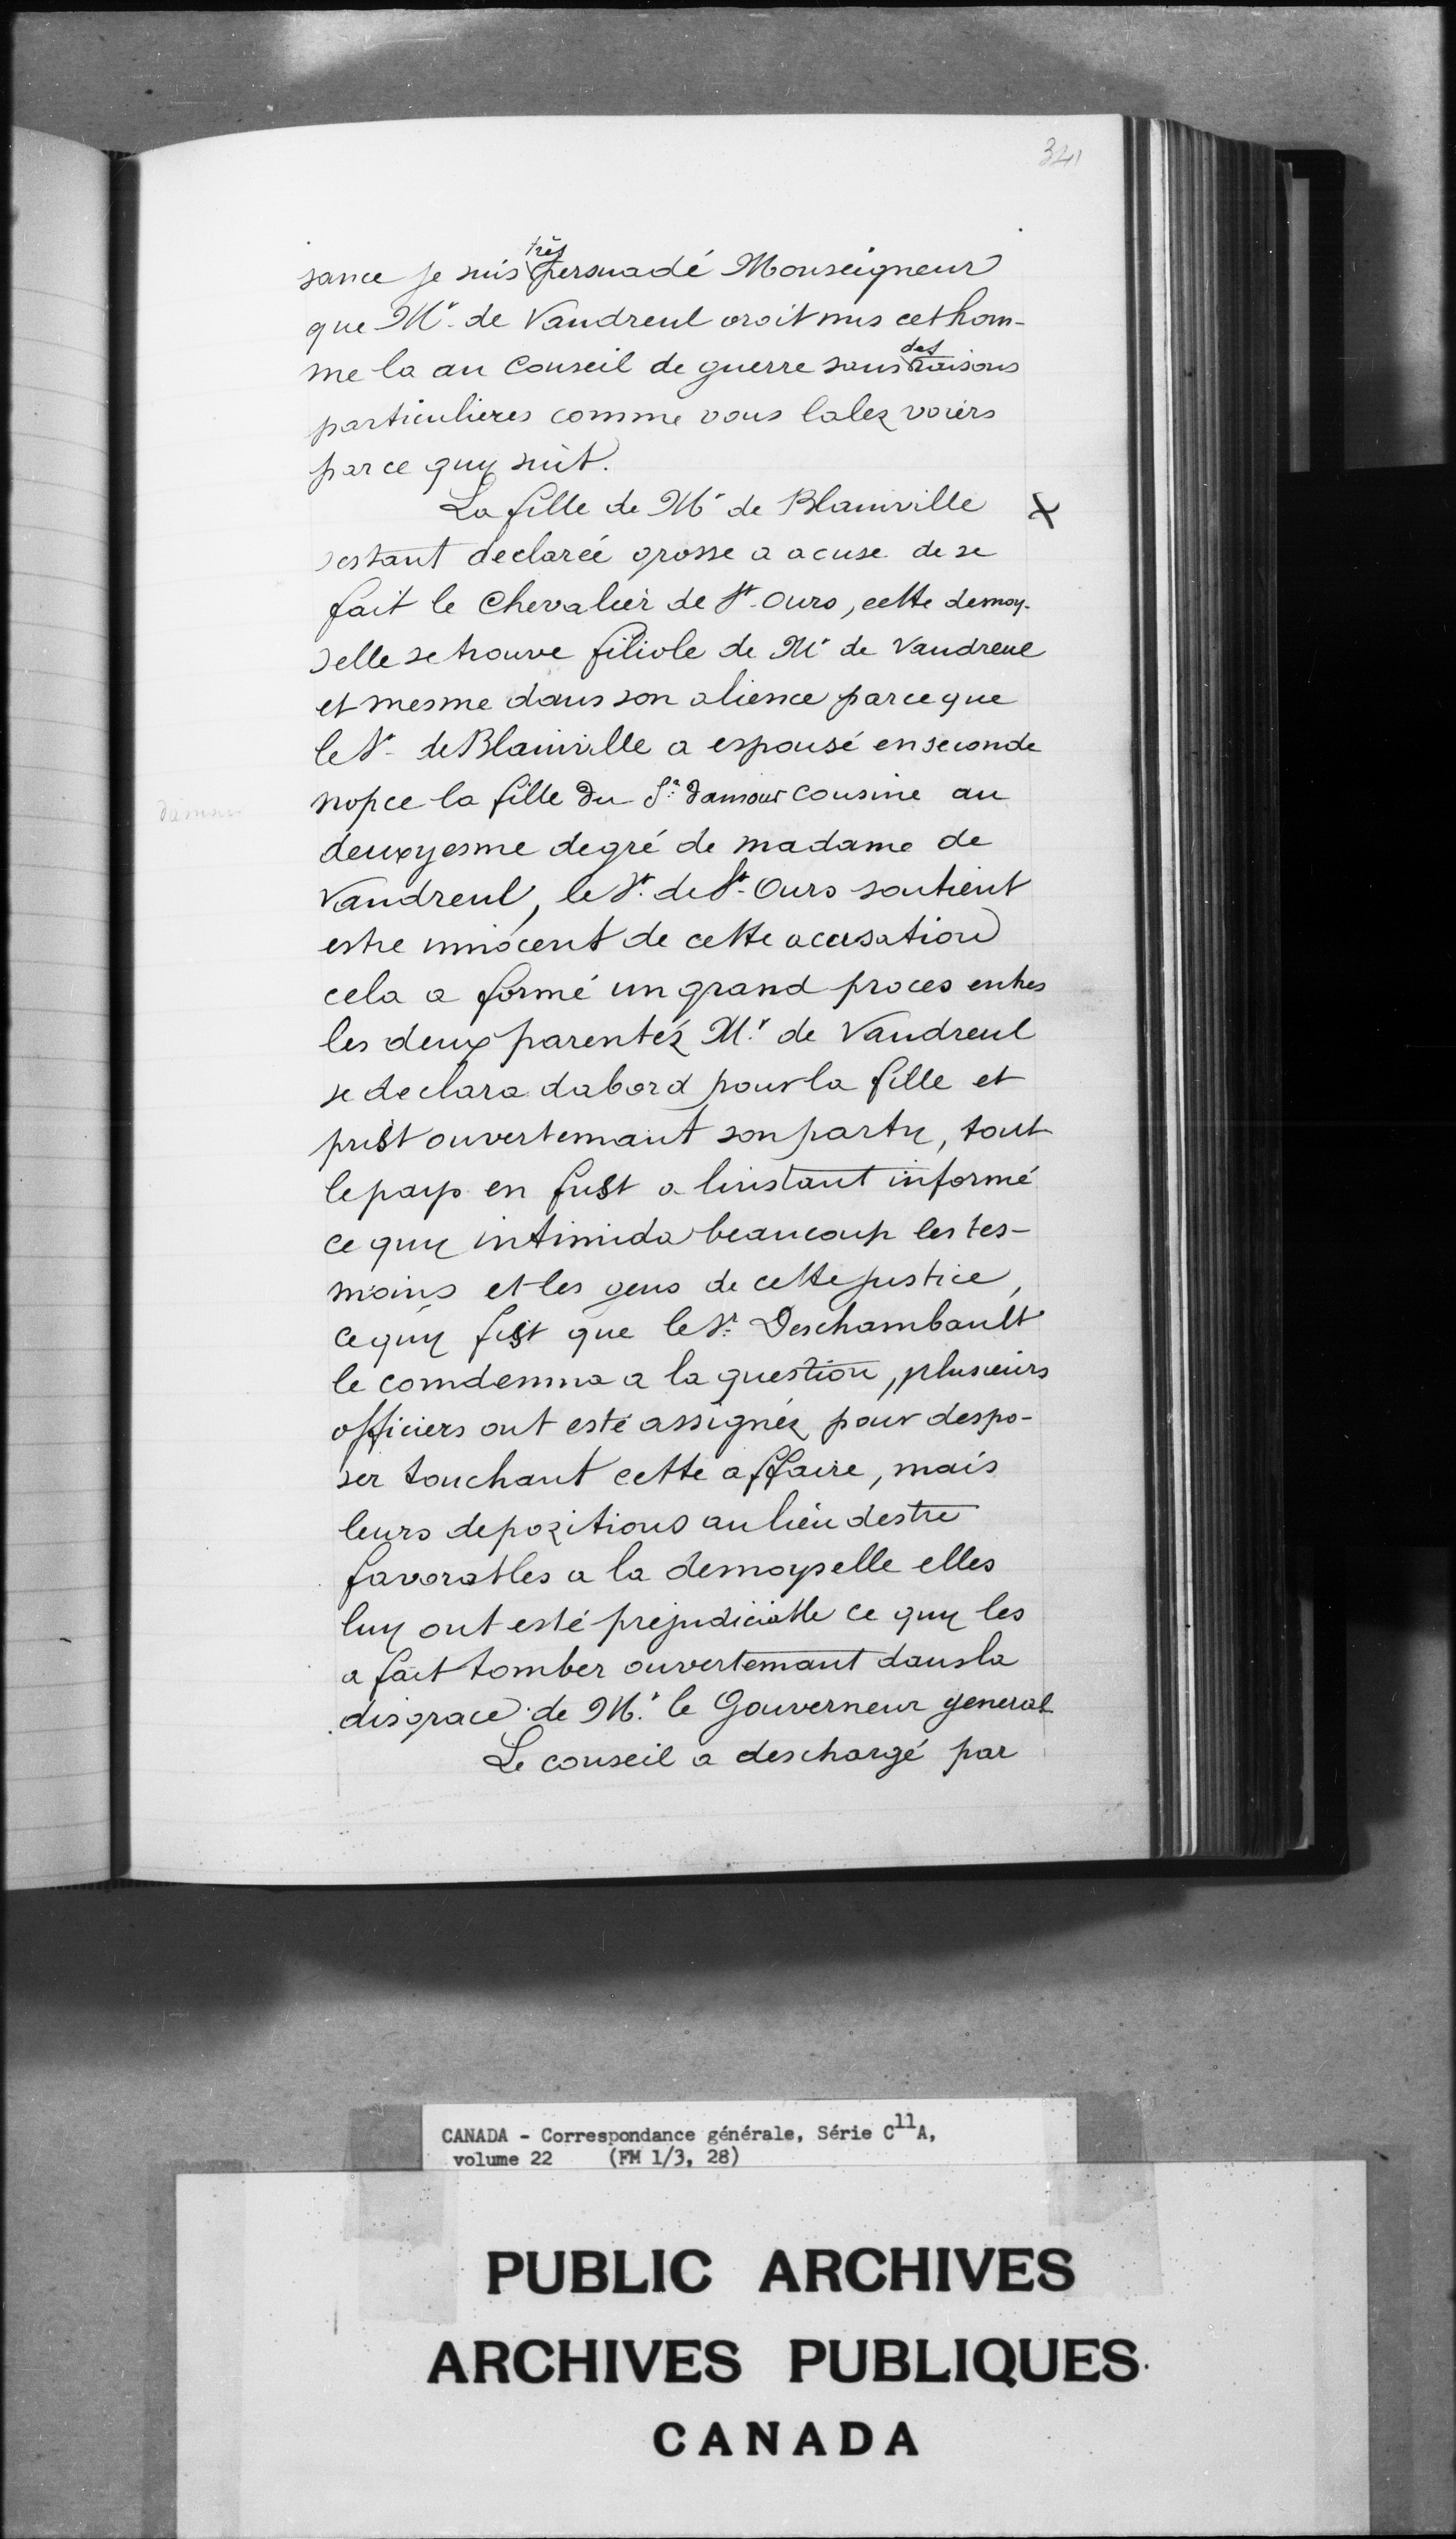 341
sance je suis très persuadé Monseigneur
que Mr. de Vaudreul aroit mis cet hom-
me la au Conseil de guerre sans des raisons
particulieres comme vous lalez voiers
par ce quy suit.
La fille de Mr de Blainville X
sestant declarée grosse a acuse de se
fait le Chevalier de St. Ours, cette demoy-
selle se trouve filiole de Mr de Vaudreul
et mesme dans son alience parceque
le Sr. de Blainville a espousé en seconde
nopce la fille du Sr. damour cousine au
deuxyesme degré de madame de
Vaudreul, le Sr. de St. Ours soutient
estre innocent de cette acusation
cela a formé un grand proces entres
les deux parentéz Mr. de Vaudreul
se declara dabord pour la fille et
prist ouvertemant son party, tout
le pays en fust a linstant informé
ce quy intimida beaucoup les tes-
moins et les gens de cette justice,
ce quy fist que le Sr. Deschambault
le comdemna a la question, plusieurs
officiers ont esté assignéz pour despo-
ser touchant cette affaire, mais
leurs depozitions au lieu destre
favorables a la demoyselle elles
luy ont esté prejudiciable ce quy les
a fait tomber ouvertemant dans la
disgrace de Mr. le Gouverneur general
Le conseil a deschargé par
CANADA - Correspondance générale, Série C11A,
volume 22 (FM 1/3, 28)
PUBLIC ARCHIVES
ARCHIVES PUBLIQUES
CANADA